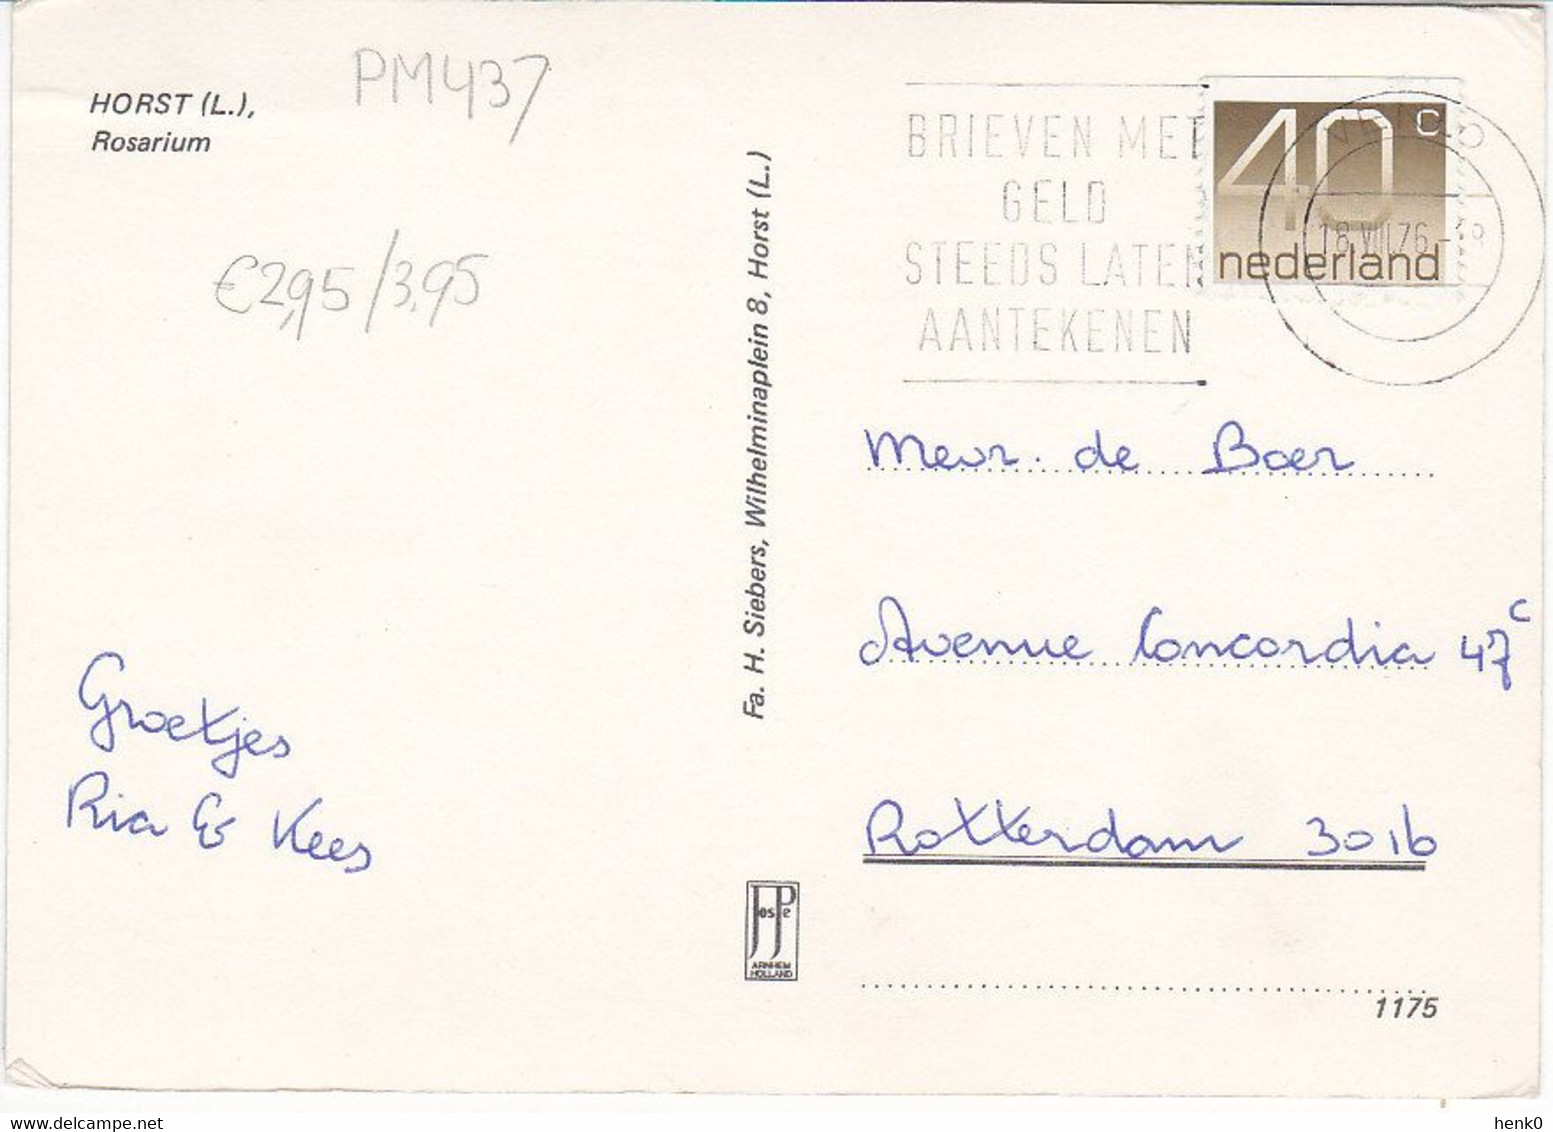 HORST (L.),
Rosarium
PM437
€2,95/3,95
Groetjes
Ria & Kees
Fa. H. Siebers, Wilhelminaplein 8, Horst (L.)
JosPe
ARNHEM
HOLLAND
BRIEVEN MET
GELD
STEEDS LATEN
AANTEKENEN
40c
nederland
VENLO
18.VIII.76-18
Mevr. de Boer
Avenue Concordia 47c
Rotterdam 3016
1175
henk0